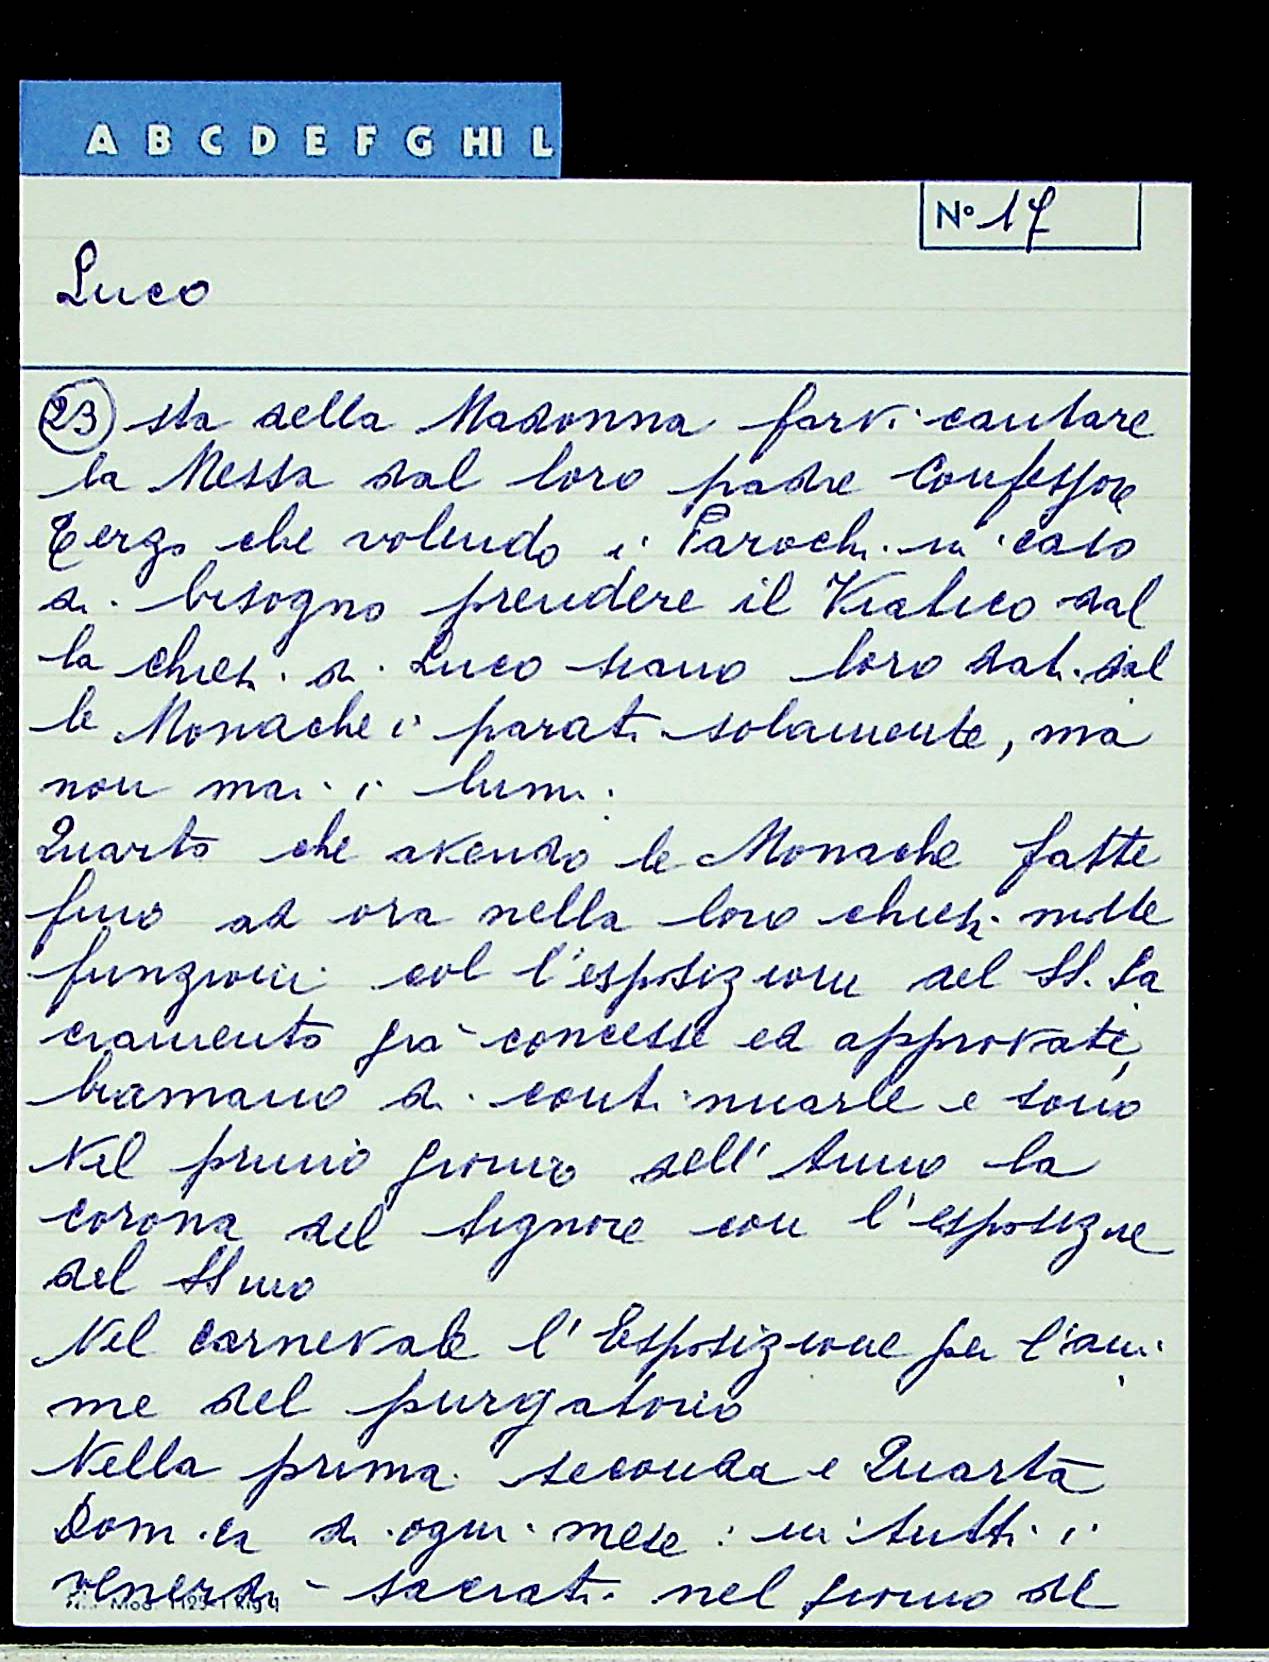 A B C D E F G HI L
N° 17
Luco
23 sta della Madonna farvi cantare
la Messa dal loro padre Confessore
Terzo che volendo i Parochi in caso
di bisogno prendere il Viatico dal
la chiesa di Luco siano loro dati dal
le Monache i parati solamente, ma
non mai i lumi.
Quarto che avendo le Monache fatte
fino ad ora nella loro chiesa molte
funzioni col l'esposizione del SS. Sa
cramento già concesse ed approvate,
bramano di continuarle e sono
Nel primo giorno dell' Anno la
corona del Signore con l'esposizne
del SSmo
Nel carnevale l'Esposizione per l'ani
me del purgatorio
Nella prima seconda e Quarta
Dom.ca di ogni mese: in tutti i
venerdi sacrati nel giorno del